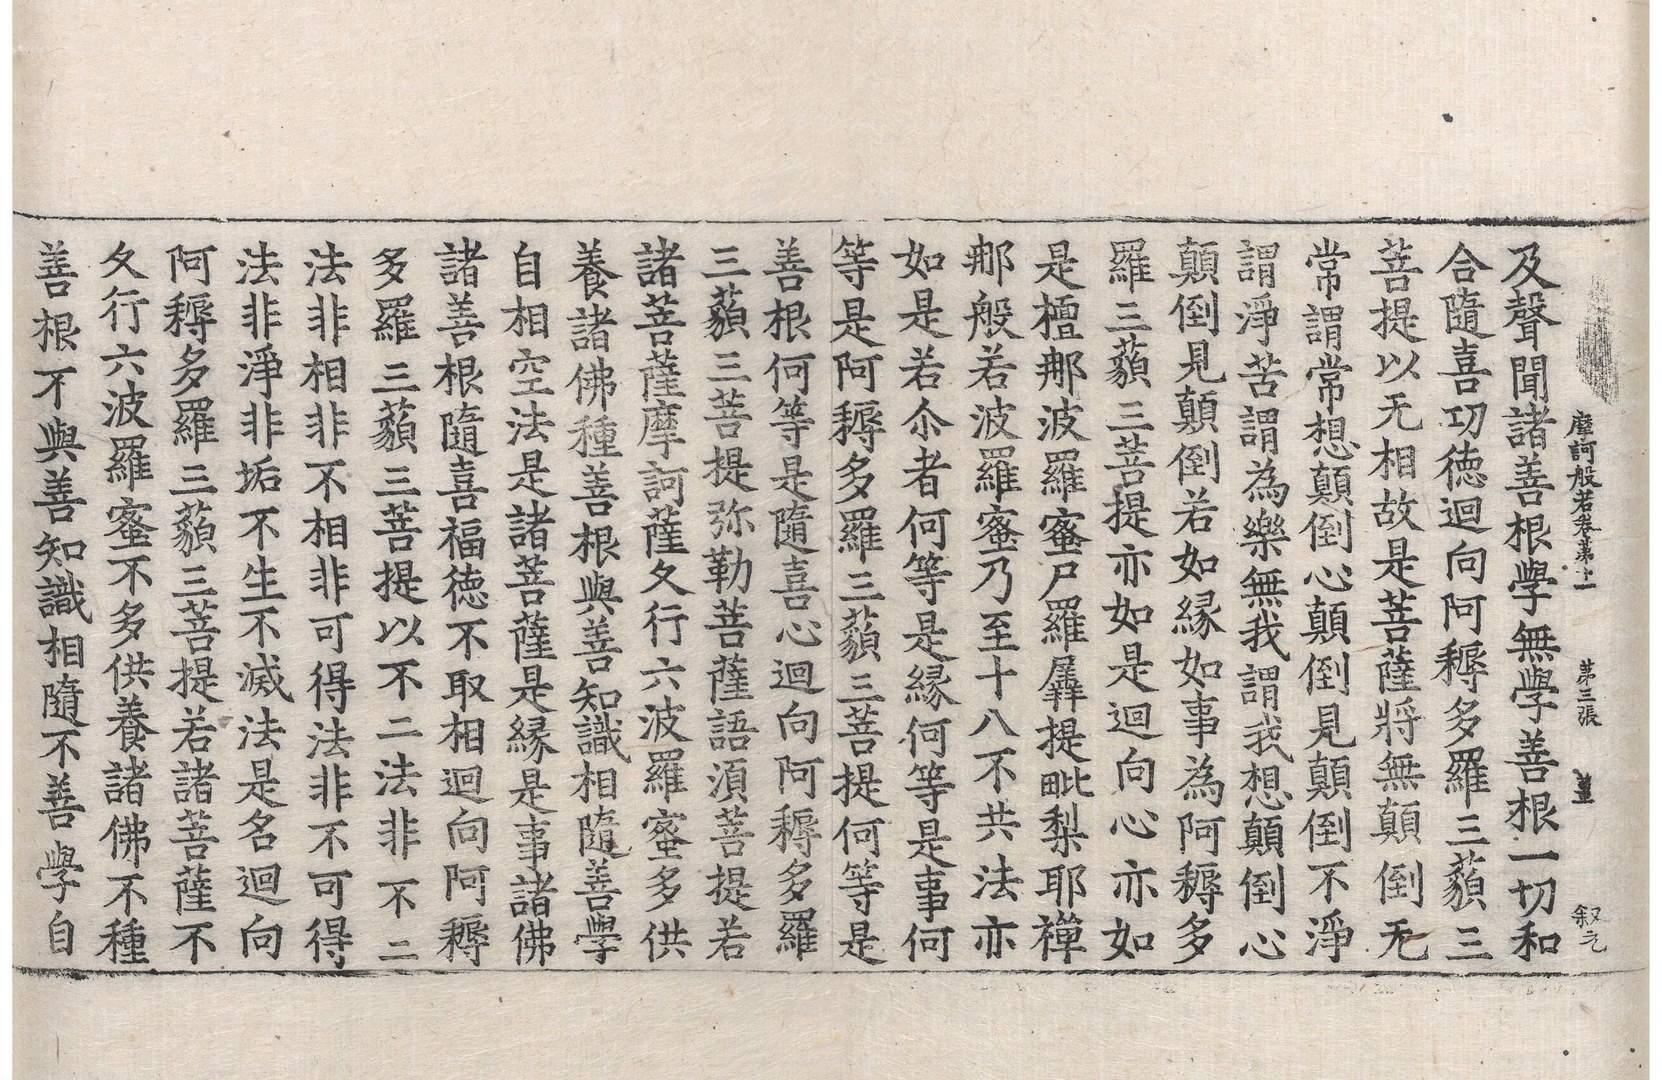 摩訶般若卷第十一　第三張　薑　叙元
及聲聞諸善根學無學善根一切和
合隨喜功徳迴向阿耨多羅三藐三
菩提以无相故是菩薩將無顛倒无
常謂常想顛倒心顛倒見顛倒不淨
謂淨苦謂為樂無我謂我想顛倒心
顛倒見顛倒若如縁如事為阿耨多
羅三藐三菩提亦如是迴向心亦如
是檀那波羅蜜尸羅羼提毗梨耶禪
那般若波羅蜜乃至十八不共法亦
如是若尒者何等是縁何等是事何
等是阿耨多羅三藐三菩提何等是
善根何等是隨喜心迴向阿耨多羅
三藐三菩提弥勒菩薩語湏菩提若
諸菩薩摩訶薩久行六波羅蜜多供
養諸佛種善根與善知識相隨善學
自相空法是諸菩薩是縁是事諸佛
諸善根隨喜福徳不取相迴向阿耨
多羅三藐三菩提以不二法非不二
法非相非不相非可得法非不可得
法非淨非垢不生不滅法是名迴向
阿耨多羅三藐三菩提若諸菩薩不
久行六波羅蜜不多供養諸佛不種
善根不與善知識相隨不善學自